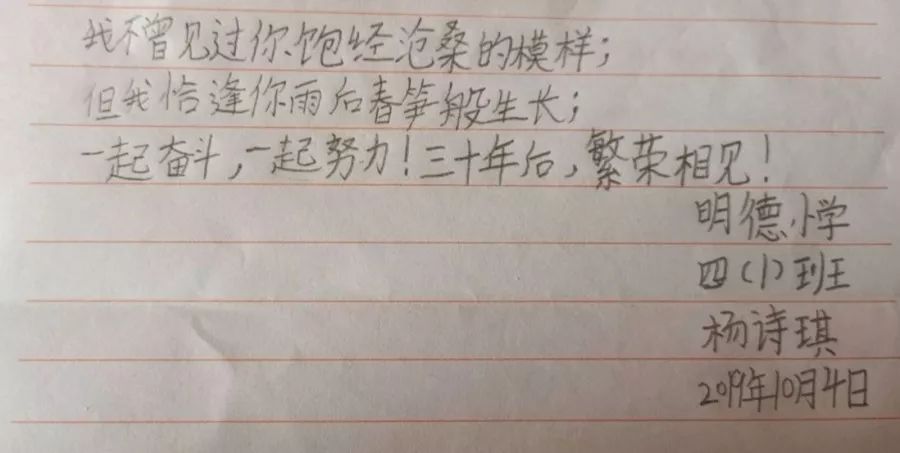 我不曾见过你饱经沧桑的模样；
但我恰逢你雨后春笋般生长；
一起奋斗，一起努力！三十年后，繁荣相见！
明德小学
四（1）班
杨诗琪
2019年10月4日